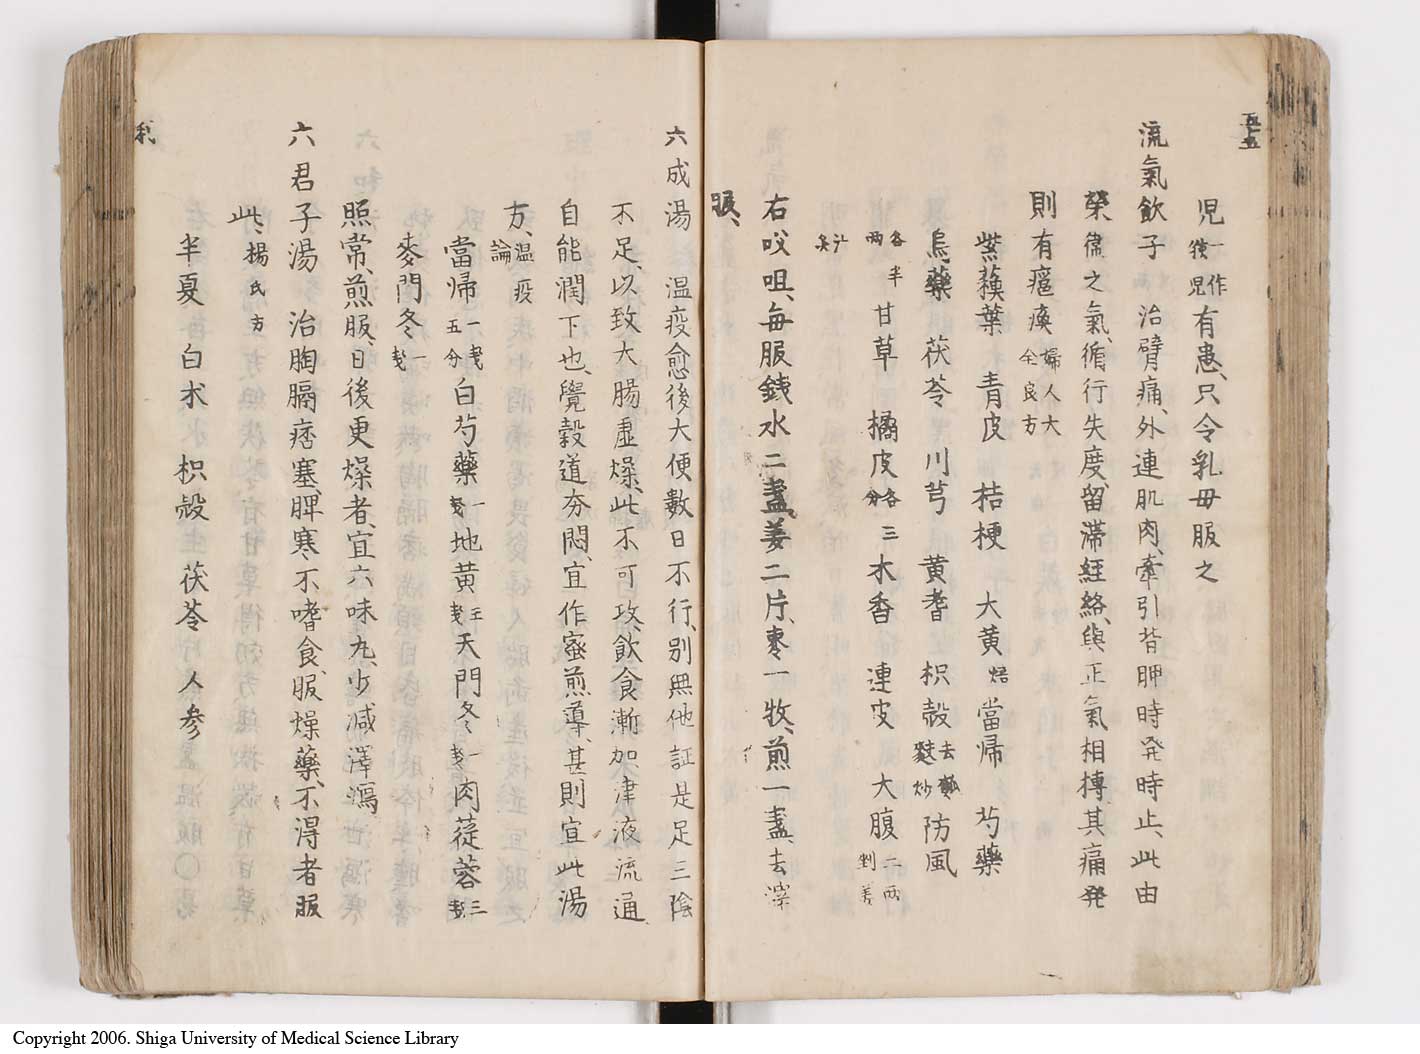 五十五
児 一作 孩児 有患、只令乳母服之
流氣飲子 治臂痛、外連肌肉、牽引背胛時発時止、此由
榮衞之氣、循行失度、留滞経絡、與正氣相搏其痛発
則有癮瘓 婦人大 全良方
紫蘓葉 青皮 桔梗 大黄 焙 當帰 芍藥
烏藥 茯苓 川芎 黄耆 枳殻 去瓤 麩炒 防風
各半 両 甘草 橘皮 各三 分 木香 連皮 大腹 二両 剉姜
汁 炙
右㕮咀、毎服銭水二盞、姜二片、棗一牧、煎一盞、去滓
服、
六成湯 温疫愈後大便數日不行、別無他証是足三陰
不足、以致大腸虚燥、此不可攻、飲食漸加津液流通
自能潤下也、覺穀道夯悶、宜作蜜煎導、甚則宜此湯
方、温疫 論
當帰 一戋 五分 白芍藥 一 戋 地黄 五 戋 天門冬 一 戋 肉蓯蓉 三 戋
麥門冬 一 戋
照常、煎服、日後更燥者、宜六味丸、少减澤瀉
六君子湯 治胸膈痞塞、脾寒不嗜食、服燥藥、不得者服
此、楊氏方
半夏 白朮 枳殻 茯苓 人参
利
Copyright 2006. Shiga University of Medical Science Library